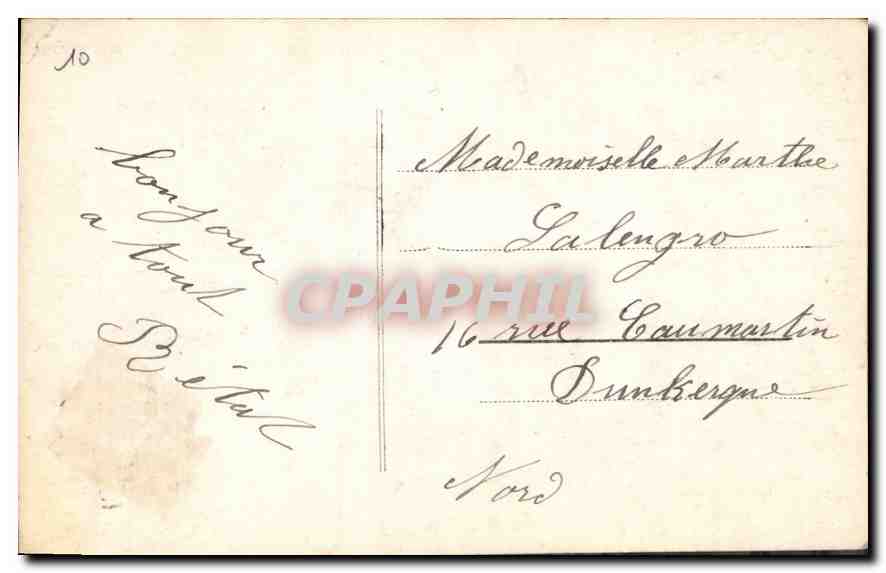 10
bonjour
a tout
R état
Mademoiselle Marthe
Lalengro
16 rue Caumartin
Dunkerque
Nord
CPAPHIL